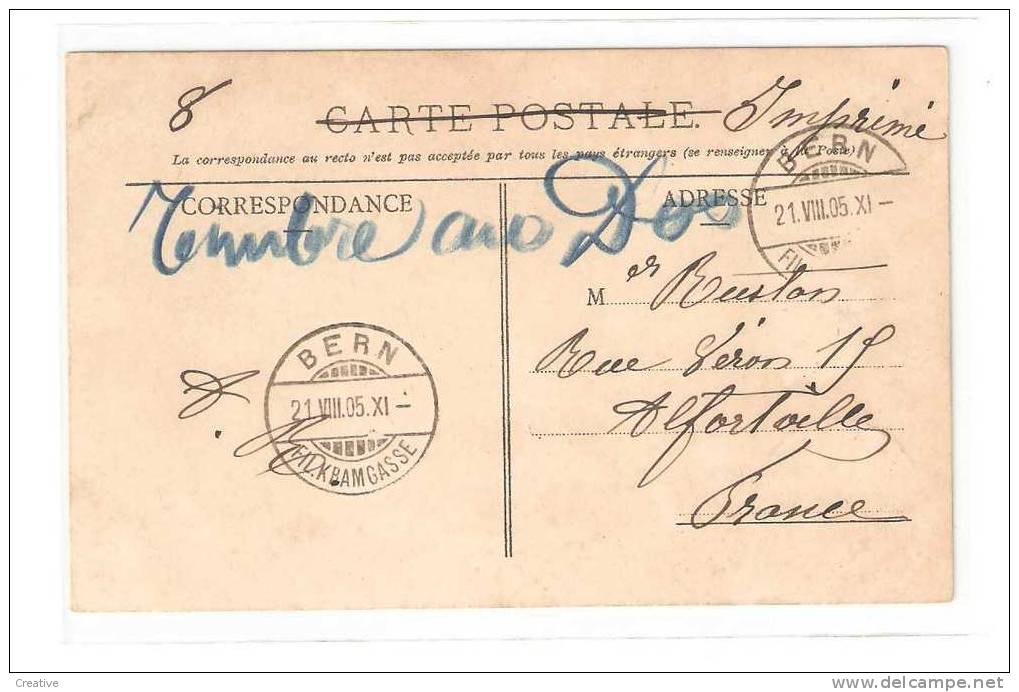 8
CARTE POSTALE. Imprimé
La correspondance au recto n'est pas acceptée par tous les pays étrangers (se renseigner à la Poste)
CORRESPONDANCE
ADRESSE
Timbre au Dos
BERN
21.VIII.05.XI-
M er Buston
Rue Véron 15
Alfortville
France
BERN
21.VIII.05.XI-
FIL.KRAMGASSE
Creative
www.delcampe.net